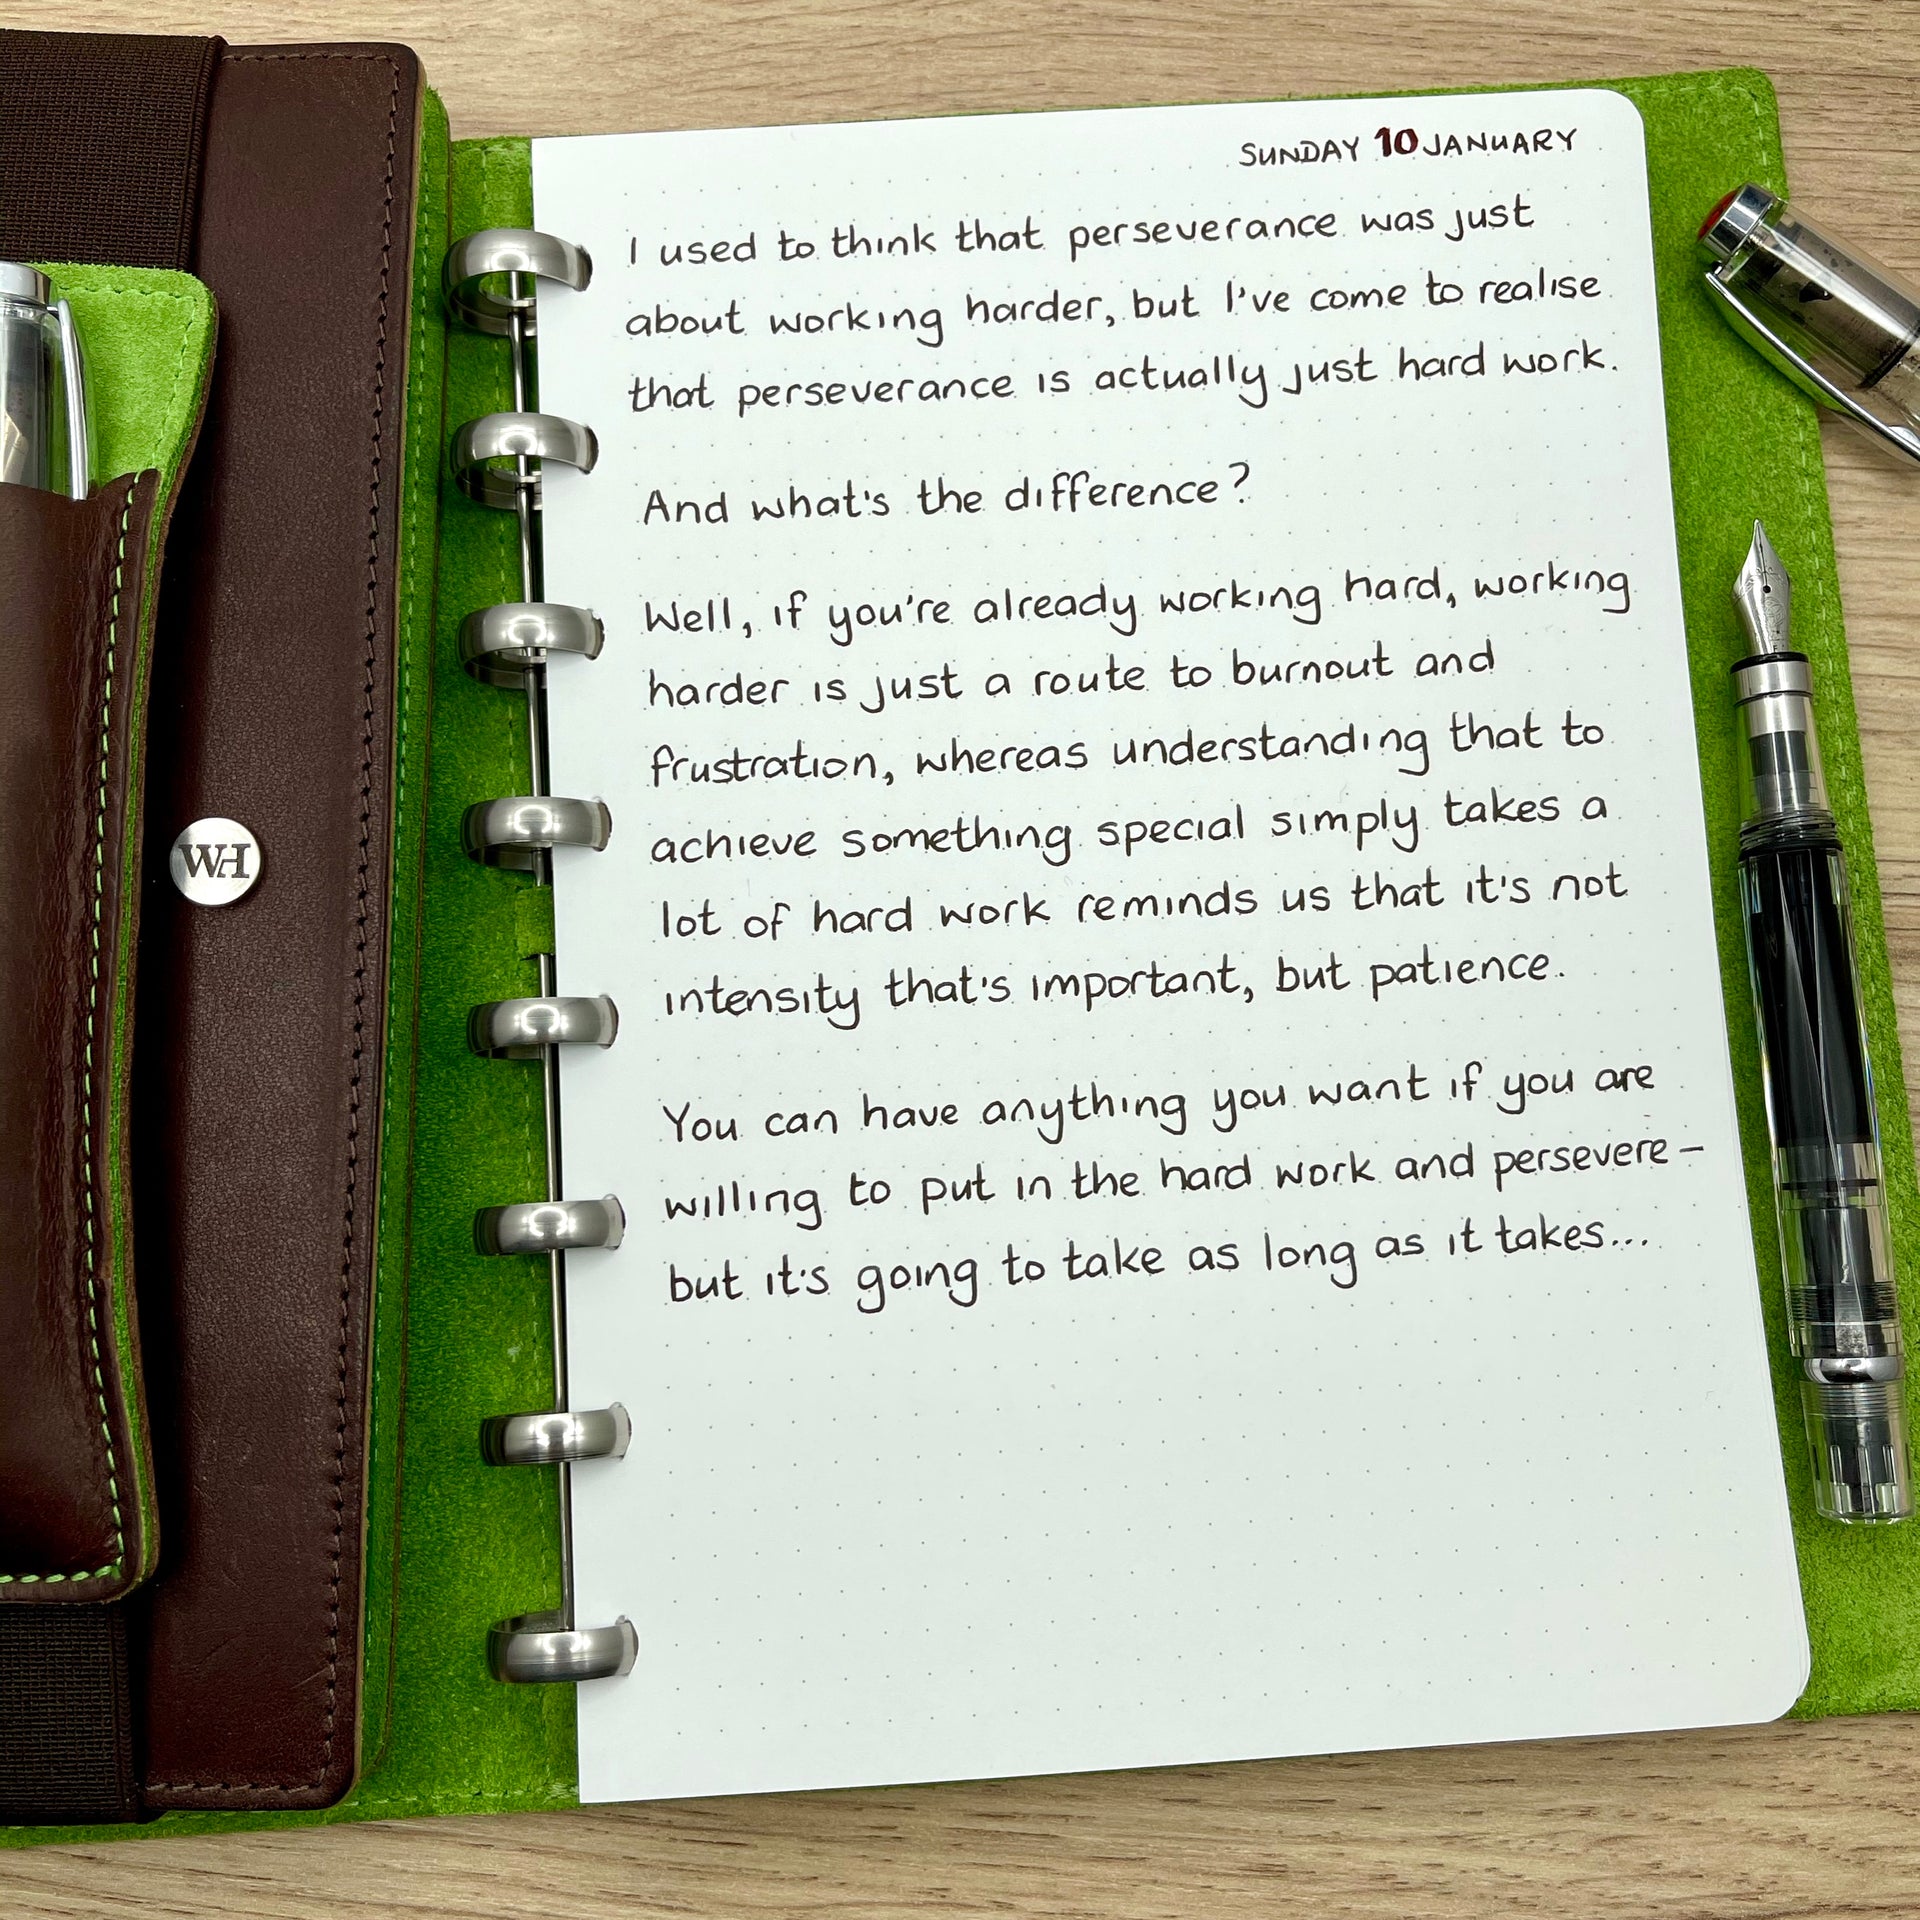 SUNDAY 10 JANUARY
I used to think that perseverance was just
about working harder, but I've come to realise
that perseverance is actually just hard work.
And what's the difference?
Well, if you're already working hard, working
harder is just a route to burnout and
frustration, whereas understanding that to
achieve something special simply takes a
lot of hard work reminds us that it's not
intensity that's important, but patience.
You can have anything you want if you are
willing to put in the hard work and persevere –
but it's going to take as long as it takes...
WH